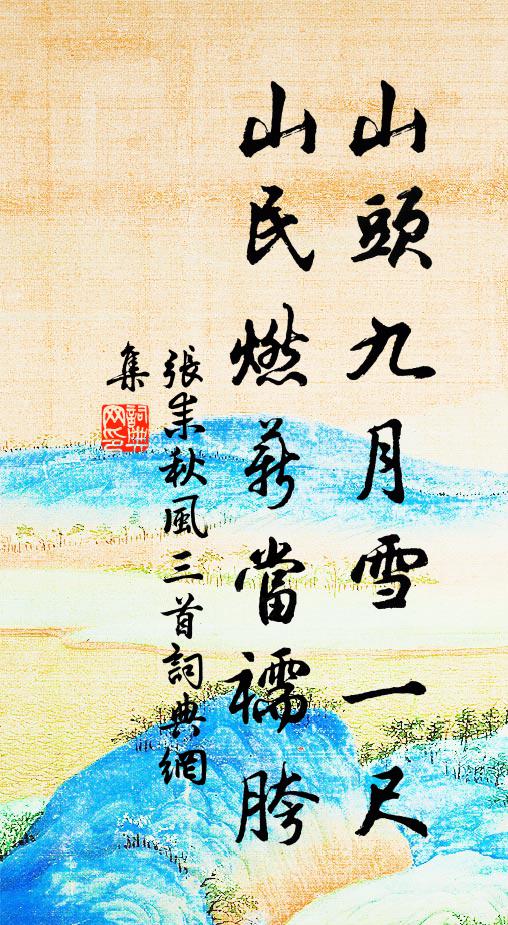 山頭九月雪一尺
山民燃薪當襦胯
張耒秋風三首詞典網
集
詞典
网印